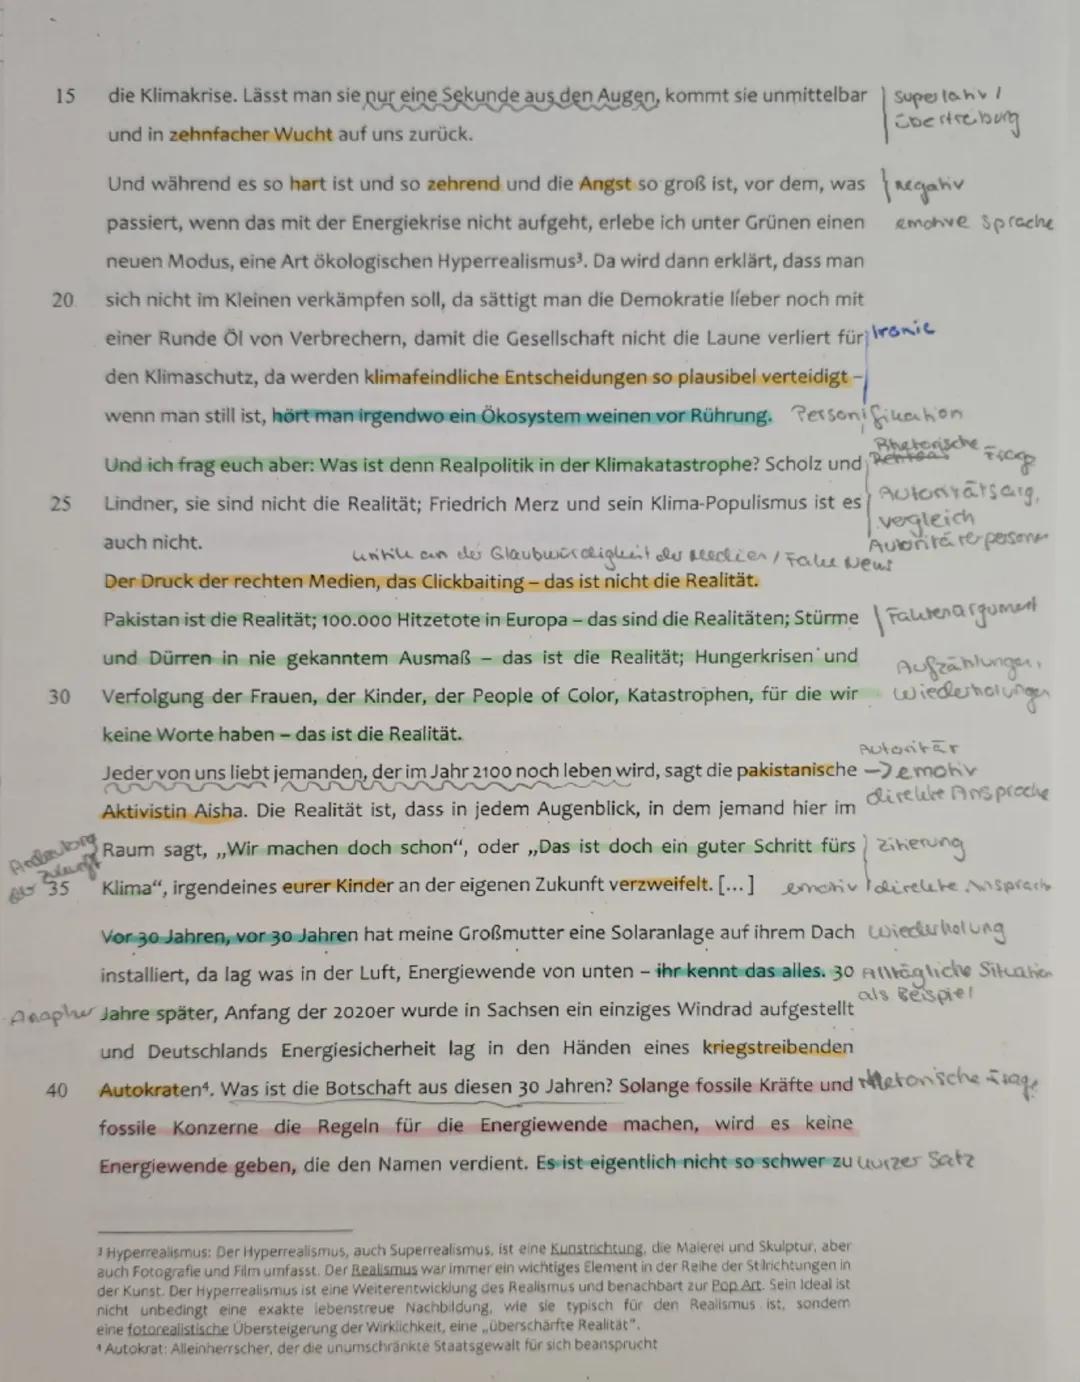 15 die Klimakrise. Lässt man sie nur eine Sekunde aus den Augen, kommt sie unmittelbar
Superlativ /
Übertreibung
und in zehnfacher Wucht auf uns zurück.
Und während es so hart ist und so zehrend und die Angst so groß ist, vor dem, was
negativ
passiert, wenn das mit der Energiekrise nicht aufgeht, erlebe ich unter Grünen einen
emotive Sprache
neuen Modus, eine Art ökologischen Hyperrealismus³. Da wird dann erklärt, dass man
20 sich nicht im Kleinen verkämpfen soll, da sättigt man die Demokratie lieber noch mit
einer Runde Öl von Verbrechern, damit die Gesellschaft nicht die Laune verliert für
Ironie
den Klimaschutz, da werden klimafeindliche Entscheidungen so plausibel verteidigt –
wenn man still ist, hört man irgendwo ein Ökosystem weinen vor Rührung.
Personifikation
Und ich frag euch aber: Was ist denn Realpolitik in der Klimakatastrophe? Scholz und
Rhetorische Frage
25 Lindner, sie sind nicht die Realität; Friedrich Merz und sein Klima-Populismus ist es
Autoritätsarg.
vergleich
auch nicht.
Autoritäreperson
kritik an der Glaubwürdigkeit der Medien / Fake News
Der Druck der rechten Medien, das Clickbaiting – das ist nicht die Realität.
Pakistan ist die Realität; 100.000 Hitzetote in Europa – das sind die Realitäten; Stürme
Faktenargument
und Dürren in nie gekanntem Ausmaß – das ist die Realität; Hungerkrisen und
Aufzählungen,
30 Verfolgung der Frauen, der Kinder, der People of Color, Katastrophen, für die wir
Wiederholungen
keine Worte haben – das ist die Realität.
Autoritär
Jeder von uns liebt jemanden, der im Jahr 2100 noch leben wird, sagt die pakistanische
→ emotiv
direkte Ansprache
Aktivistin Aisha. Die Realität ist, dass in jedem Augenblick, in dem jemand hier im
Raum sagt, „Wir machen doch schon“, oder „Das ist doch ein guter Schritt fürs
Zitierung
35 Klima“, irgendeines eurer Kinder an der eigenen Zukunft verzweifelt. [...]
emotiv / direkte Ansprach
Vor 30 Jahren, vor 30 Jahren hat meine Großmutter eine Solaranlage auf ihrem Dach
Wiederholung
installiert, da lag was in der Luft, Energiewende von unten – ihr kennt das alles. 30
Alltägliche Situation
als Beispiel
Anapher
Jahre später, Anfang der 2020er wurde in Sachsen ein einziges Windrad aufgestellt
und Deutschlands Energiesicherheit lag in den Händen eines kriegstreibenden
40 Autokraten⁴. Was ist die Botschaft aus diesen 30 Jahren? Solange fossile Kräfte und
Rhetorische Frage
fossile Konzerne die Regeln für die Energiewende machen, wird es keine
Energiewende geben, die den Namen verdient. Es ist eigentlich nicht so schwer zu
kurzer Satz
³ Hyperrealismus: Der Hyperrealismus, auch Superrealismus, ist eine Kunstrichtung, die Malerei und Skulptur, aber
auch Fotografie und Film umfasst. Der Realismus war immer ein wichtiges Element in der Reihe der Stilrichtungen in
der Kunst. Der Hyperrealismus ist eine Weiterentwicklung des Realismus und benachbart zur Pop Art. Sein Ideal ist
nicht unbedingt eine exakte lebenstreue Nachbildung, wie sie typisch für den Realismus ist, sondern
eine fotorealistische Übersteigerung der Wirklichkeit, eine „überschärfte Realität“.
⁴ Autokrat: Alleinherrscher, der die unumschränkte Staatsgewalt für sich beansprucht